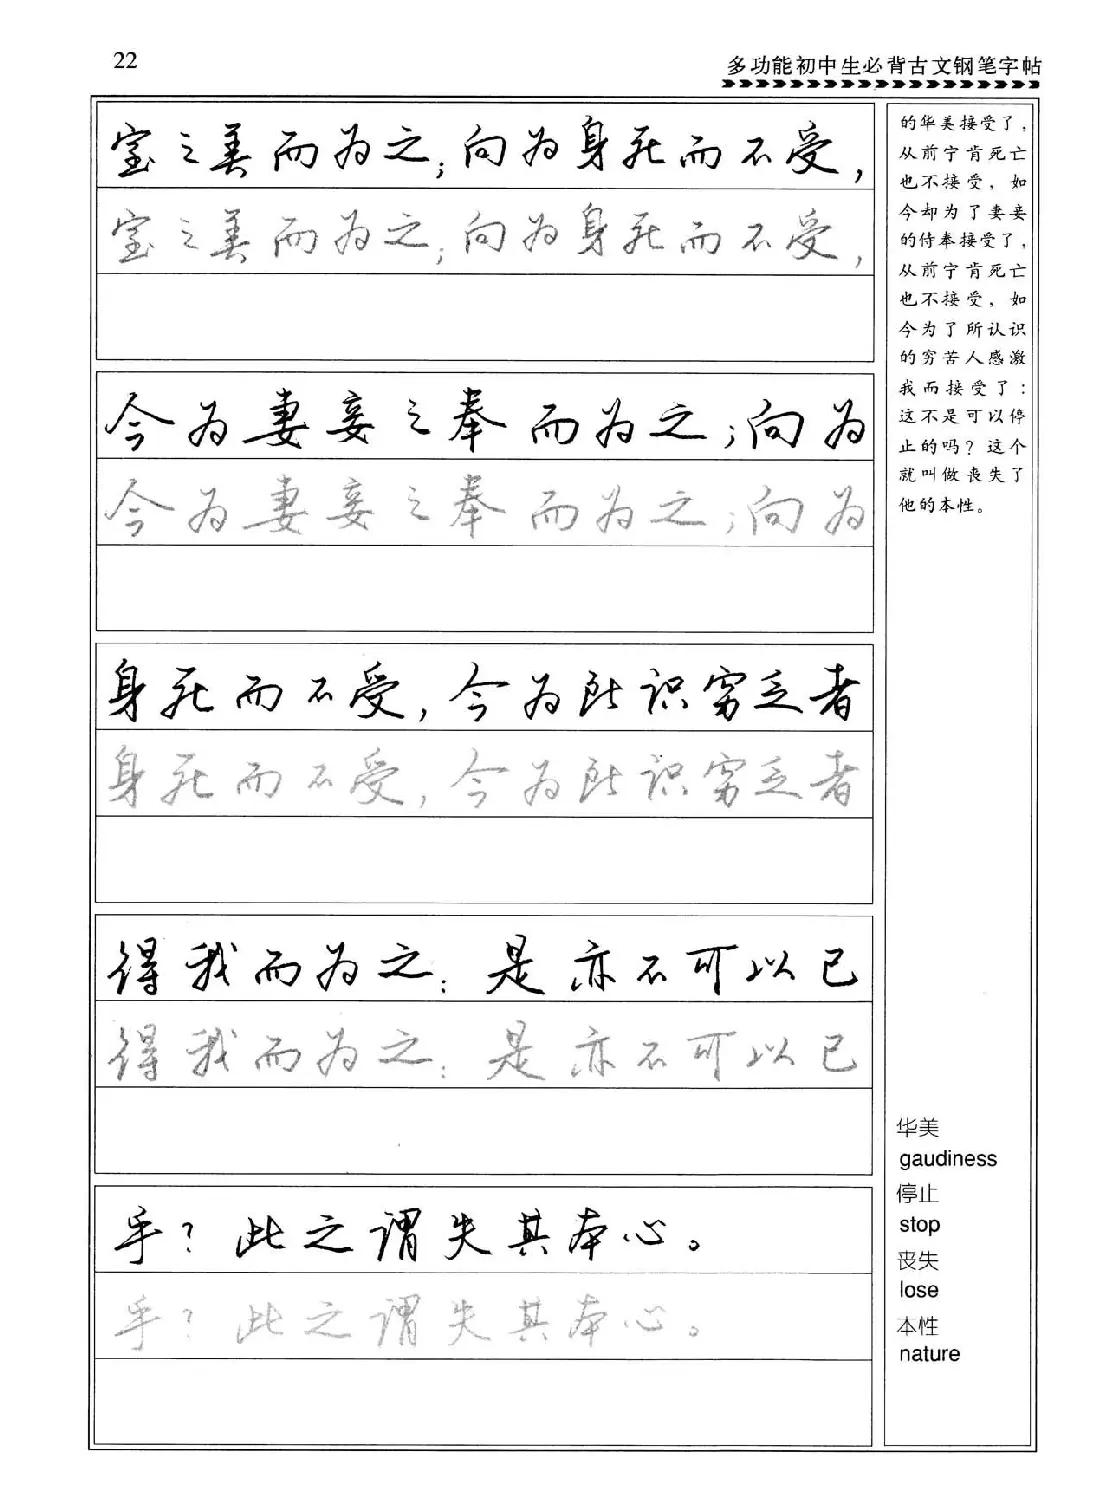 22
多功能初中生必背古文钢笔字帖
室之美而为之;向为身死而不受,
室之美而为之;向为身死而不受,
今为妻妾之奉而为之;向为
今为妻妾之奉而为之;向为
身死而不受,今为所识穷乏者
身死而不受,今为所识穷乏者
得我而为之:是亦不可以已
得我而为之:是亦不可以已
乎?此之谓失其本心。
乎?此之谓失其本心。
的华美接受了,
从前宁肯死亡
也不接受,如
今却为了妻妾
的侍奉接受了,
从前宁肯死亡
也不接受,如
今为了所认识
的穷苦人感激
我而接受了:
这不是可以停
止的吗?这个
就叫做丧失了
他的本性。
华美
gaudiness
停止
stop
丧失
lose
本性
nature